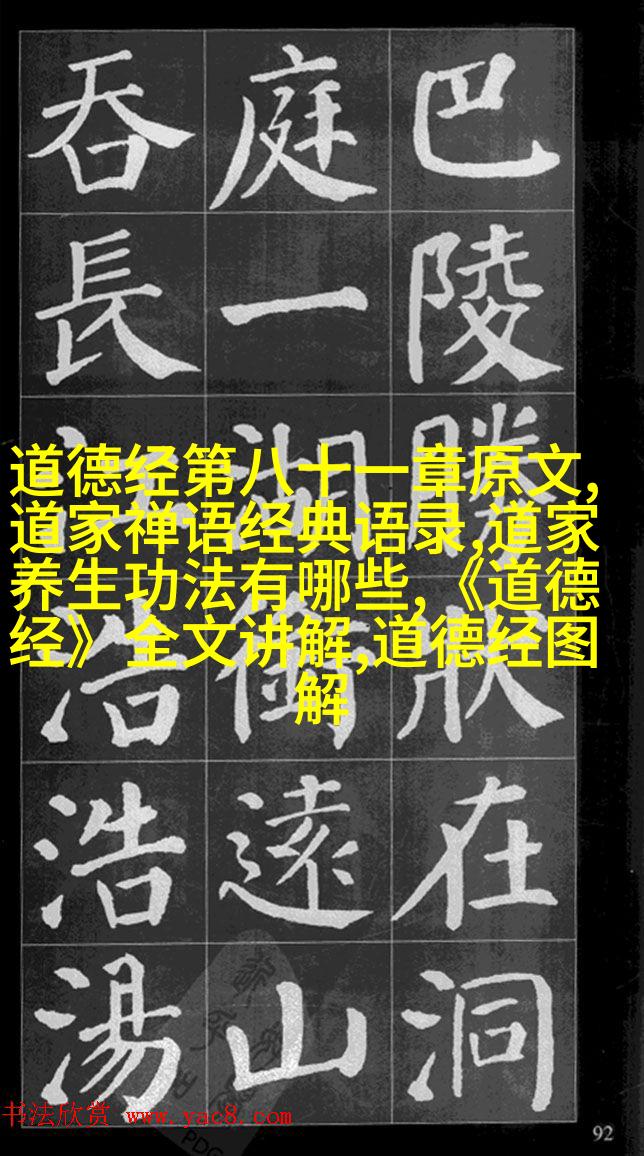 巴陵勝狀在洞
庭一湖銜遠山
吞長江浩浩湯
道德经第八十一章原文,
道家禅语经典语录,道家
养生功法有哪些,《道德
经》全文讲解,道德经图
解
书法欣赏 www.yac8.com
PDG
92